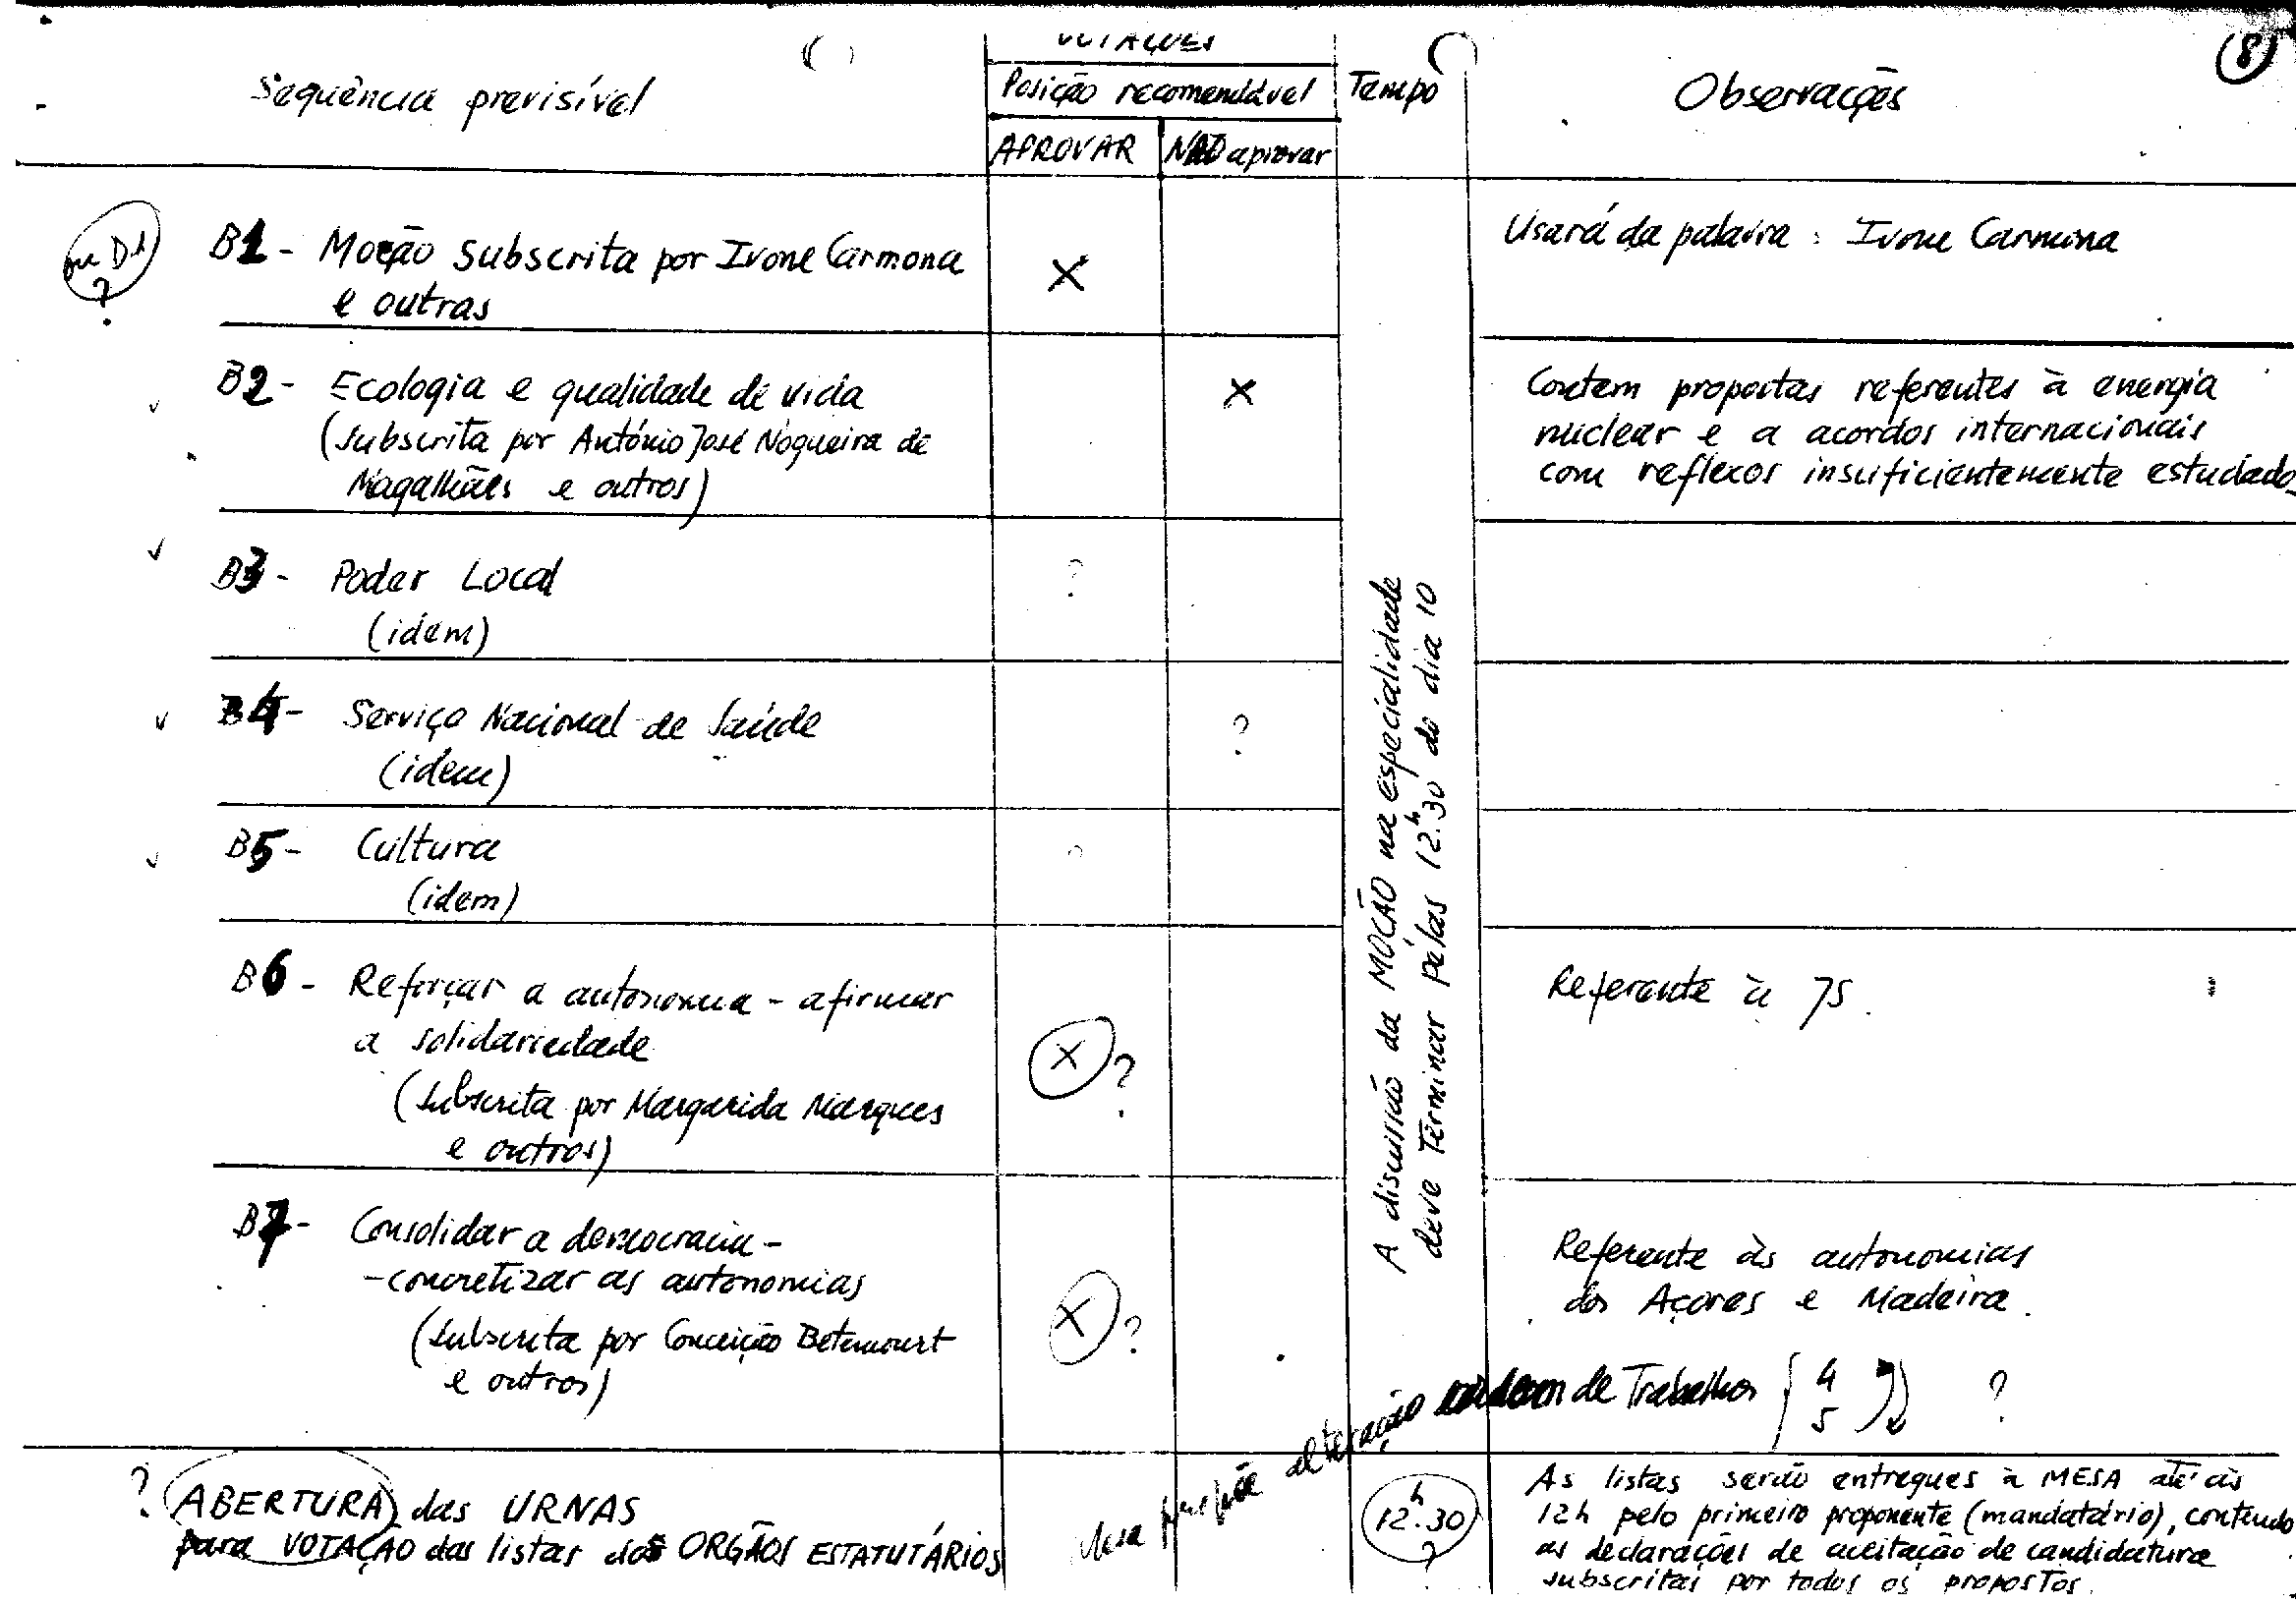 (8)
VOTAÇÕES
Sequência previsível
Posição recomendável
Tempo
Observações
APROVAR
NÃO aprovar
ou D1
?
B1 - Moção subscrita por Ivone Carmona
e outras
X
Usará da palavra: Ivone Carmona
B2 - Ecologia e qualidade de vida
(subscrita por António José Nogueira de
Magalhães e outros)
X
Contem propostas referentes à energia
nuclear e a acordos internacionais
com reflexos insuficientemente estudados
B3 - Poder Local
(idem)
?
B4 - Serviço Nacional de Saúde
(idem)
?
B5 - Cultura
(idem)
B6 - Reforçar a autonomia - afirmar
a solidariedade
(subscrita por Margarida Marques
e outros)
X ?
Referente à JS.
B7 - Consolidar a democracia -
- concretizar as autonomias
(subscrita por Conceição Betencourt
e outros)
X ?
Referente às autonomias
dos Açores e Madeira.
A discussão da MOÇÃO na especialidade
deve terminar pelas 12h.30 do dia 10
Mesa propõe alteração ordem de Trabalhos
4
5
?
? ABERTURA das URNAS
para VOTAÇÃO das listas dos ORGÃOS ESTATUTÁRIOS
12h.30
?
As listas serão entregues à MESA até às
12h pelo primeiro proponente (mandatário), contendo
as declarações de aceitação de candidatura
subscritas por todos os propostos.